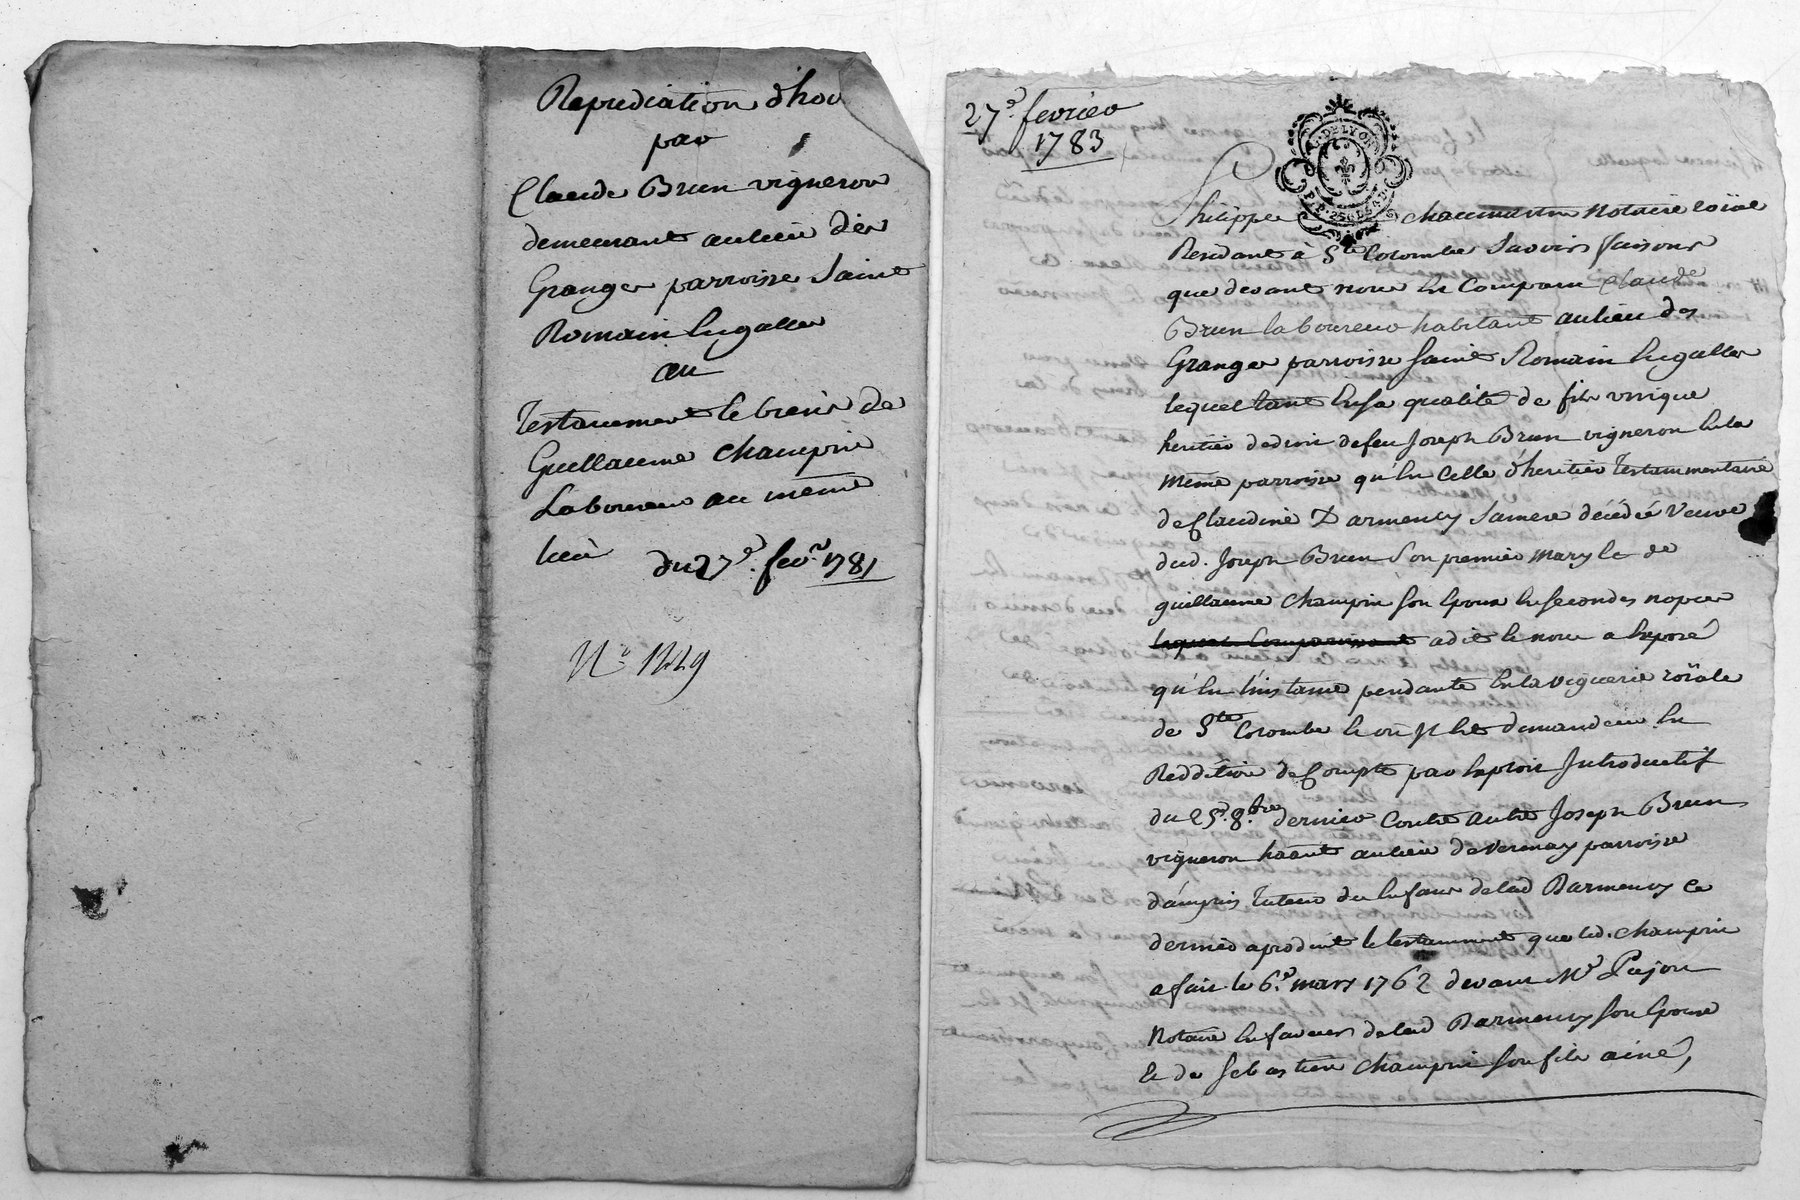 Repudiation d'hoi
par
Claude Brun vigneron
demeurant au lieu des
Granges parroisse Saint
Romain en galles
au
Testament et biens de
Guillaume Champin
Laboureur au même
lieu
du 27e. fevr. 1781
N° 1449
27e. fevrier
1783
G. DE LYON
Philippe Chaumartin Notaire roïal
Residant à Ste Colombe Savoir faisons
que devant nous est Comparu Claude
Brun laboureur habitant au lieu des
Granges parroisse Saint Romain en galles
lequel tant en sa qualité de fils unique
heritier de droit de feu Joseph Brun vigneron en la
même parroisse qu'en Celle d'heritier Testammentaire
de Claudine Darmency sa mere décédée Veuve
dud. Joseph Brun Son premier mary et de
guillaume Champin son Epoux en secondes nopces
a dit et nous a Exposé
qu'en l'instance pendante en la viguerie roïale
de Ste Colombe où Il est demandeur en
Reddition de Compte par Exploit Introductif
du 25e. 8.bre dernier Contre autre Joseph Brun
vigneron haânt au lieu de Verenay parroisse
d'ampuis tuteur des Enfans de lad Darmency ce
dernier a produit le testamment que led. Champin
a fait le 6e. mars 1762 devant Me Pujon
Notaire en faveur de lad Darmency son Epouse
et de Sebastien Champin son fils ainé,